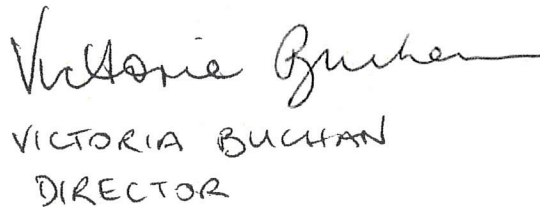 Victoria Buchan
VICTORIA BUCHAN
DIRECTOR